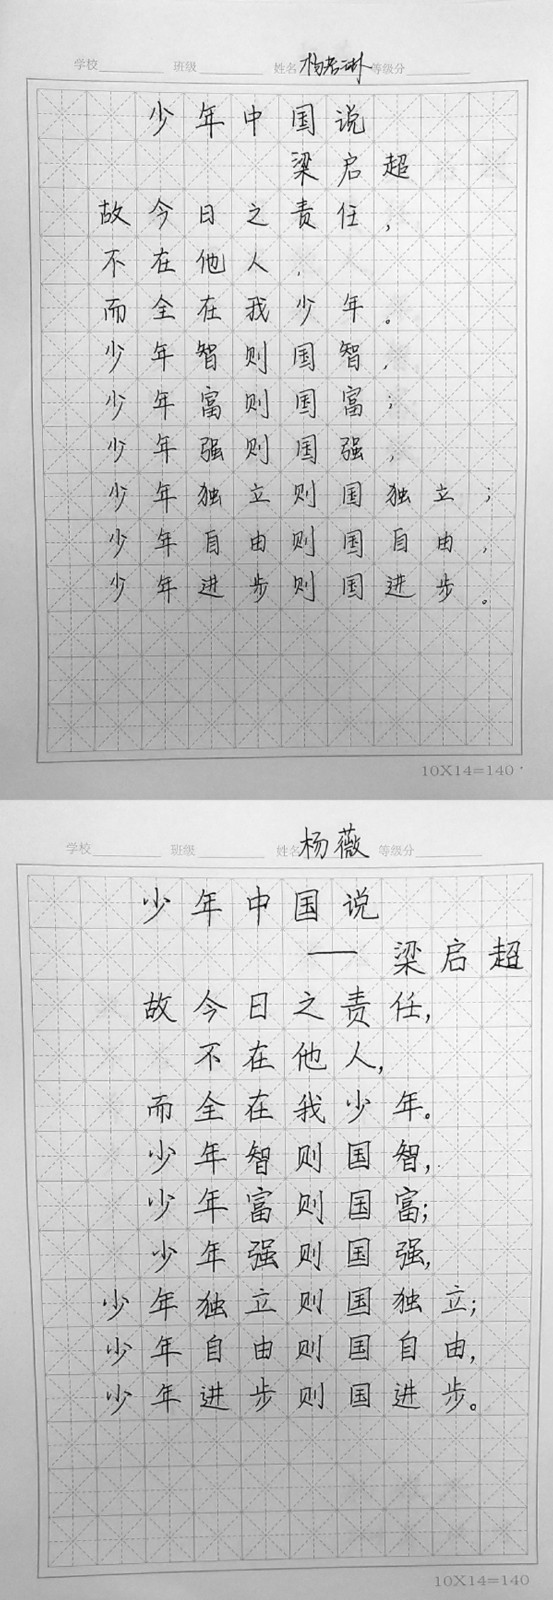 学校 班级 姓名 杨 等级分
少年中国说
梁启超
故今日之责任，
不在他人，
而全在我少年。
少年智则国智，
少年富则国富；
少年强则国强，
少年独立则国独立；
少年自由则国自由，
少年进步则国进步。
10X14=140
学校 班级 姓名 杨薇 等级分
少年中国说
——梁启超
故今日之责任，
不在他人，
而全在我少年。
少年智则国智，
少年富则国富；
少年强则国强，
少年独立则国独立；
少年自由则国自由，
少年进步则国进步。
10X14=140